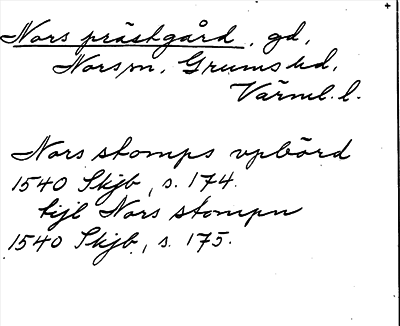 Nors prästgård, gd,
Nors sn, Grums hd,
Värml. l.
Nors stomps vpbörd
1540 Skjb, s. 174.
tijl Nors stompn
1540 Skjb, s. 175.